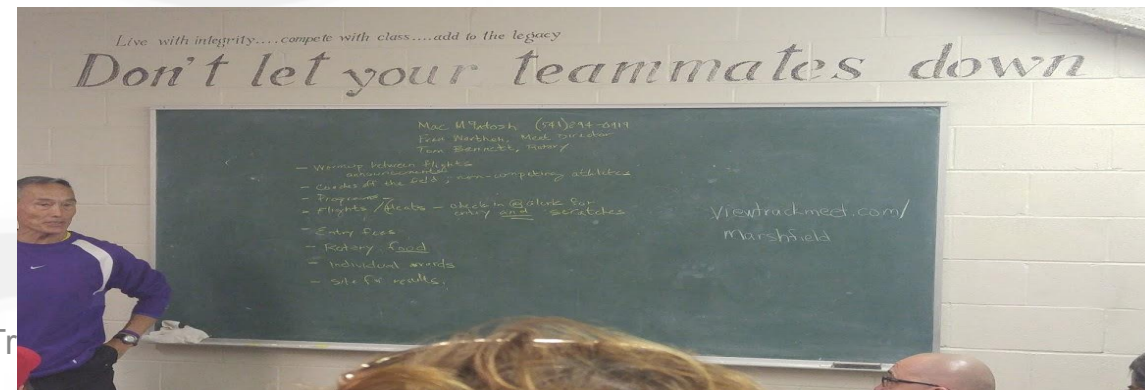 Live with integrity....compete with class....add to the legacy
Don't let your teammates down
Mac
Tom Bennett, Rotary
- Warmup between flights
announcements
- Coaches off the field; non-competing athletes
- Flights / Heats - check in @ a link for
entry and scratches
- Entry fees
- Rotary food
- Individual awards
- Site for results.
Viewtrackmeet.com/
Marshfield
Tr